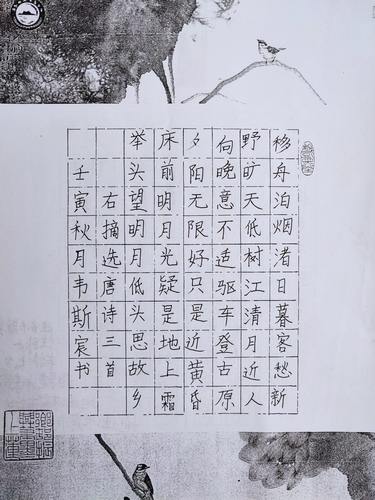 移舟泊烟渚日暮客愁新
野旷天低树江清月近人
向晚意不适驱车登古原
夕阳无限好只是近黄昏
床前明月光疑是地上霜
举头望明月低头思故乡
右摘选唐诗三首
壬寅秋月韦斯宸书